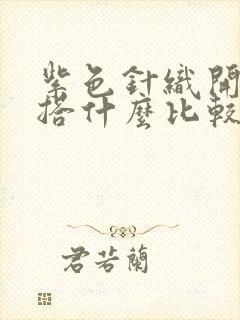 紫色針織開
搭什麼比較
君若蘭